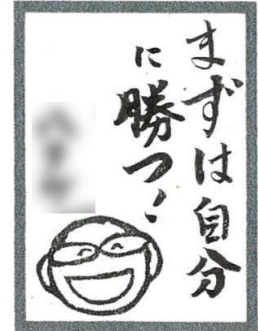 まずは自分
に勝つ!